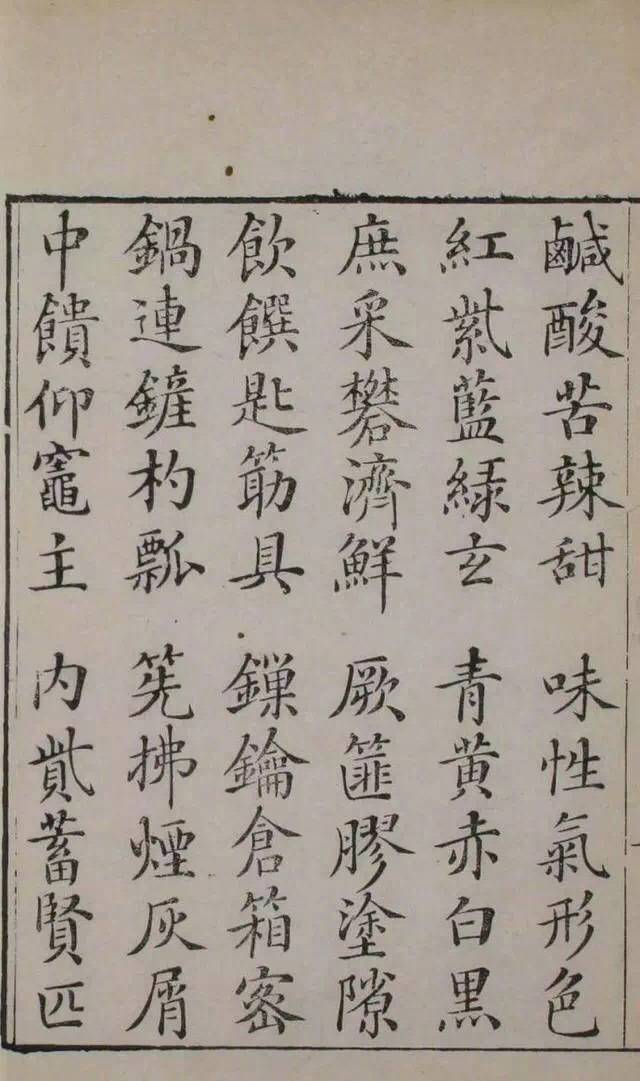 鹹酸苦辣甜 味性氣形色
紅紫藍緑玄 青黄赤白黒
庶采礬濟鮮 厥篚膠塗隙
飲饌匙筯具 鏁鑰倉箱密
鍋連鏟杓瓢 筅拂煙灰屑
中饋仰竈主 内貳蓄賢匹